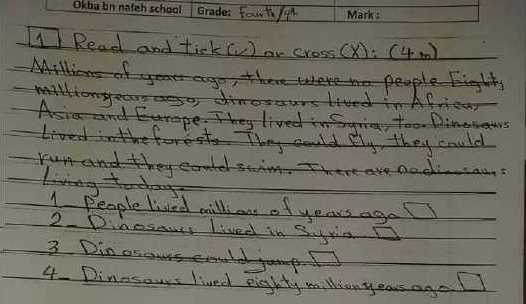 Okba bn nafeh school Grade: Fourth/4th Mark:
1 Read and tick (✓) or cross (X): (4m)
Millions of years ago, there were no people Eighty
million years ago, dinosaurs lived in Africa,
Asia and Europe. They lived in Syria, too. Dinosaurs
Lived in the forests. They could fly, they could
run and they could swim. There are no dinosaurs
living today.
1- People lived millions of years ago □
2- Dinosaurs lived in Syria □
3- Dinosaurs could jump. □
4- Dinosaurs lived eighty million years ago □